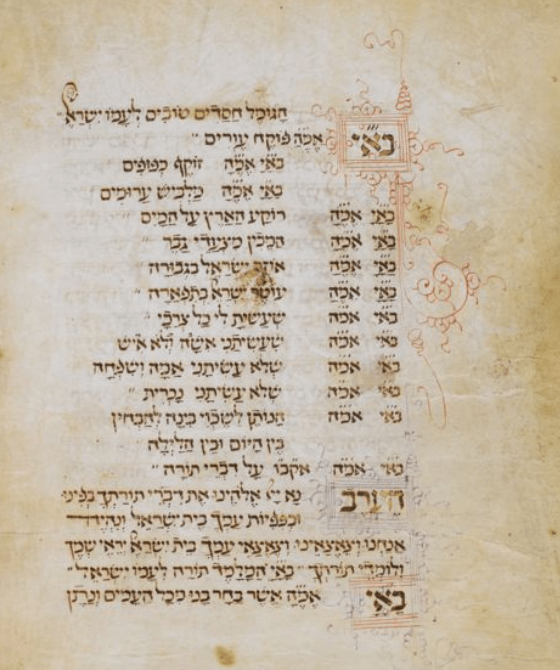 הגומל חסדים טובים לעמו ישראל
בא״י אמ״ה פוקח עיורים
בא״י אמ״ה זוקף כפופים
בא״י אמ״ה מלביש ערומים
בא״י אמ״ה רוקיע הארץ על המים
בא״י אמ״ה המכין מצעדי גבר
בא״י אמ״ה אוזר ישראל בגבורה
בא״י אמ״ה עוטר ישראל בתפארה
בא״י אמ״ה שעשית לי כל צרכי
בא״י אמ״ה שעשיתני אשה ולא איש
בא״י אמ״ה שלא עשיתני אמה ושפחה
בא״י אמ״ה שלא עשיתני נכרית
בא״י אמ״ה הנותן לשכוי בינה להבחין
בין היום ובין הלילה
בא״י אמ״ה אקבו על דברי תורה
הערב נא יי אלהינו את דברי תורתך בפינו
ובפפיות עמך בית ישראל ונהיה
אנחנו וצאצאינו וצאצאי עמך בית ישראל יראי שמך
ולומדי תורתך בא״י המלמד תורה לעמו ישראל
בא״י אמ״ה אשר בחר בנו מכל העמים ונתן